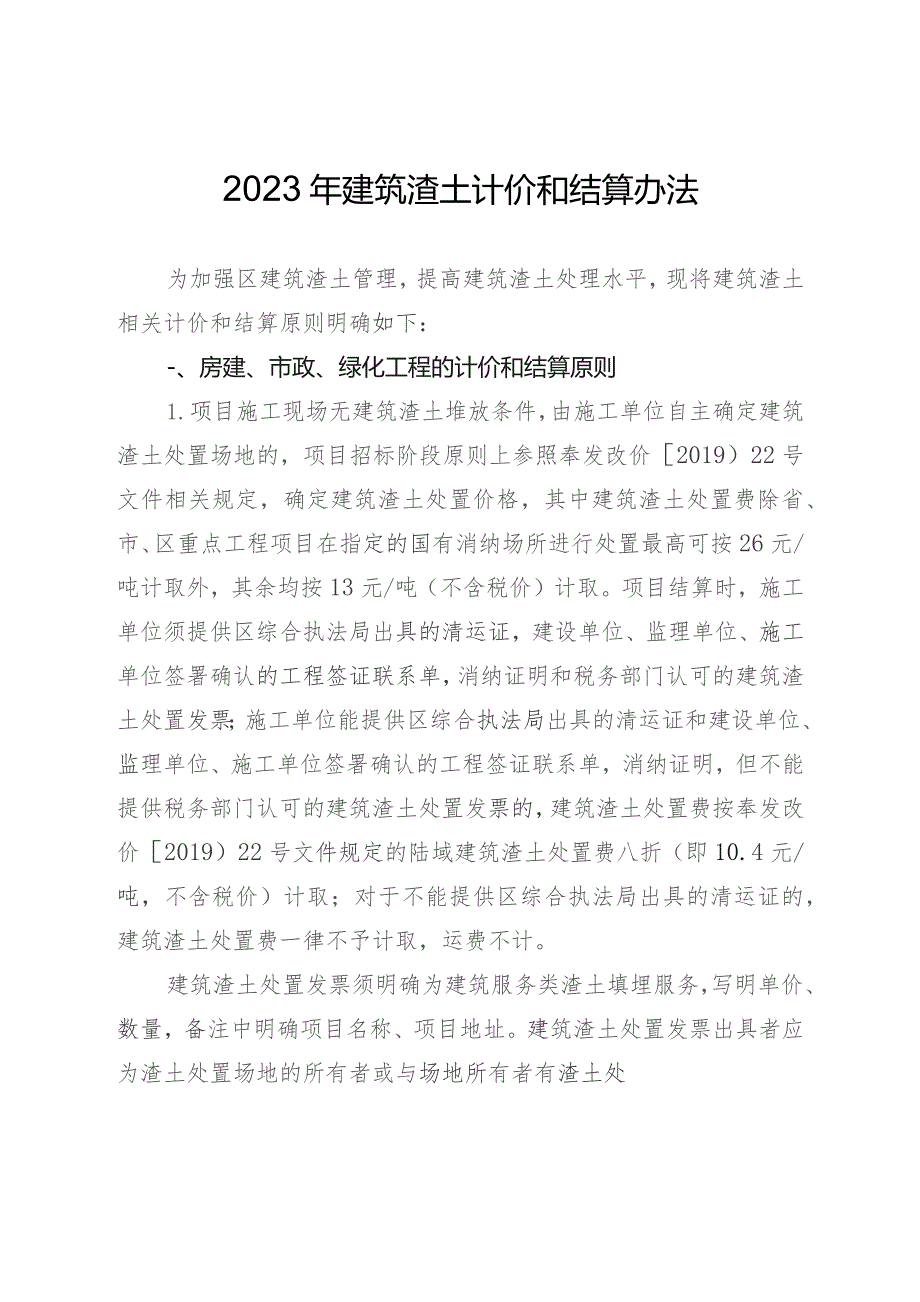 2023 年建筑渣土计价和结算办法
为加强区建筑渣土管理，提高建筑渣土处理水平，现将建筑渣土
相关计价和结算原则明确如下：
-、房建、市政、绿化工程的计价和结算原则
1.项目施工现场无建筑渣土堆放条件，由施工单位自主确定建筑
渣土处置场地的，项目招标阶段原则上参照奉发改价［2019）22 号
文件相关规定，确定建筑渣土处置价格，其中建筑渣土处置费除省、
市、区重点工程项目在指定的国有消纳场所进行处置最高可按 26 元/
吨计取外，其余均按 13 元/吨（不含税价）计取。项目结算时，施工
单位须提供区综合执法局出具的清运证，建设单位、监理单位、施工
单位签署确认的工程签证联系单，消纳证明和税务部门认可的建筑渣
土处置发票；施工单位能提供区综合执法局出具的清运证和建设单位、
监理单位、施工单位签署确认的工程签证联系单，消纳证明，但不能
提供税务部门认可的建筑渣土处置发票的，建筑渣土处置费按奉发改
价［2019）22 号文件规定的陆域建筑渣土处置费八折（即 10.4 元/
吨，不含税价）计取；对于不能提供区综合执法局出具的清运证的，
建筑渣土处置费一律不予计取，运费不计。
建筑渣土处置发票须明确为建筑服务类渣土填埋服务，写明单价、
数量，备注中明确项目名称、项目地址。建筑渣土处置发票出具者应
为渣土处置场地的所有者或与场地所有者有渣土处